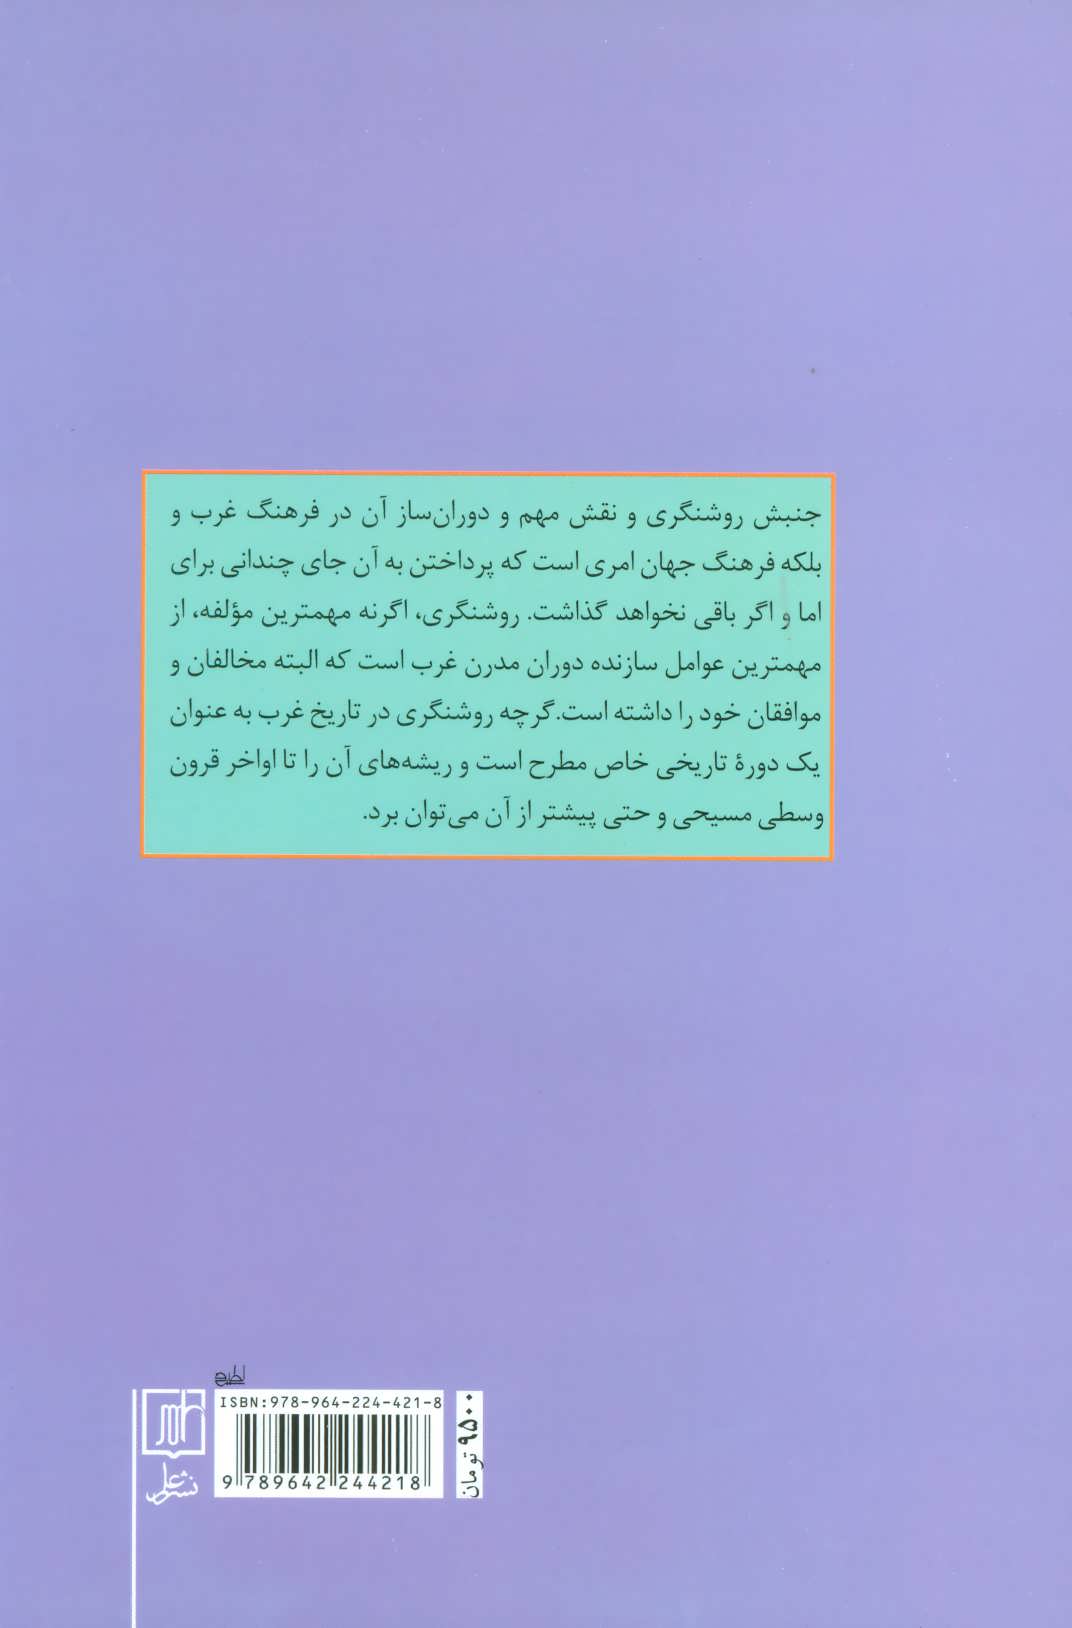 جنبش روشنگری و نقش مهم و دوران‌ساز آن در فرهنگ غرب و
بلکه فرهنگ جهان امری است که پرداختن به آن جای چندانی برای
اما و اگر باقی نخواهد گذاشت. روشنگری، اگرنه مهمترین مؤلفه، از
مهمترین عوامل سازنده دوران مدرن غرب است که البته مخالفان و
موافقان خود را داشته است.گرچه روشنگری در تاریخ غرب به عنوان
یک دورهٔ تاریخی خاص مطرح است و ریشه‌های آن را تا اواخر قرون
وسطی مسیحی و حتی پیشتر از آن می‌توان برد.
ISBN:978-964-224-421-8
9 789642 244218
۹۵۰۰ تومان
نشر علم